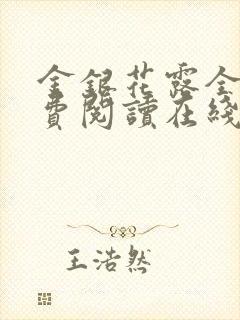 金銀花露全
費閱讀在綫
王浩然